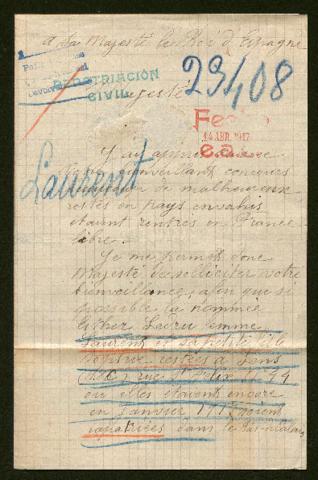 A Sa Majesté le Roi d'Espagne
REPATRIACIÓN
CIVIL
29408
Majesté
Fe
14 ABR. 1917
e.a.
Laurent
J'ai appris
bienveillant concours
de malheureux
restés en pays envahis
étaient rentrés en France
libre.
Je me permets donc
Majesté de solliciter votre
bienveillance, afin que si
possible la nommée
Esther femme
Laurent et sa petite fille
restées à Lens
(P.d.C.) rue
où elles étaient encore
en Janvier 1917 soient
rapatriées dans le Pas-de-Calais